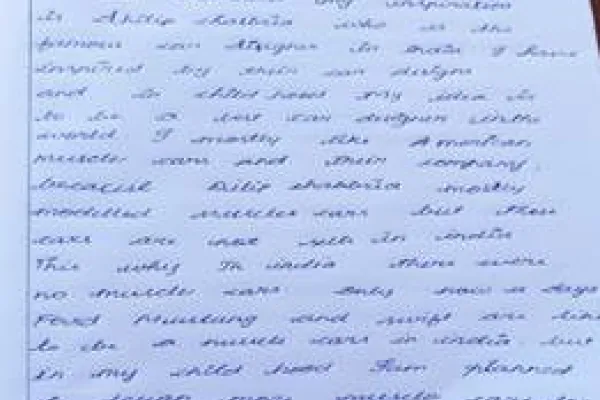 my inspiration
is Dhilip chabbria who is the
famous car designer in India I have
inspired by their car designs
and in child hood my idea is
to be a best car designer in the
world I mostly like American
muscle cars and their company.
because Dilip chabbria mostly
modelled muscles cars but those
cars are not sell in india
This why In india there were
no muscle cars only now a days
Ford Mustang and swift are like
to be a muscle cars in india. but
in my child hood I am planned
muscle cars